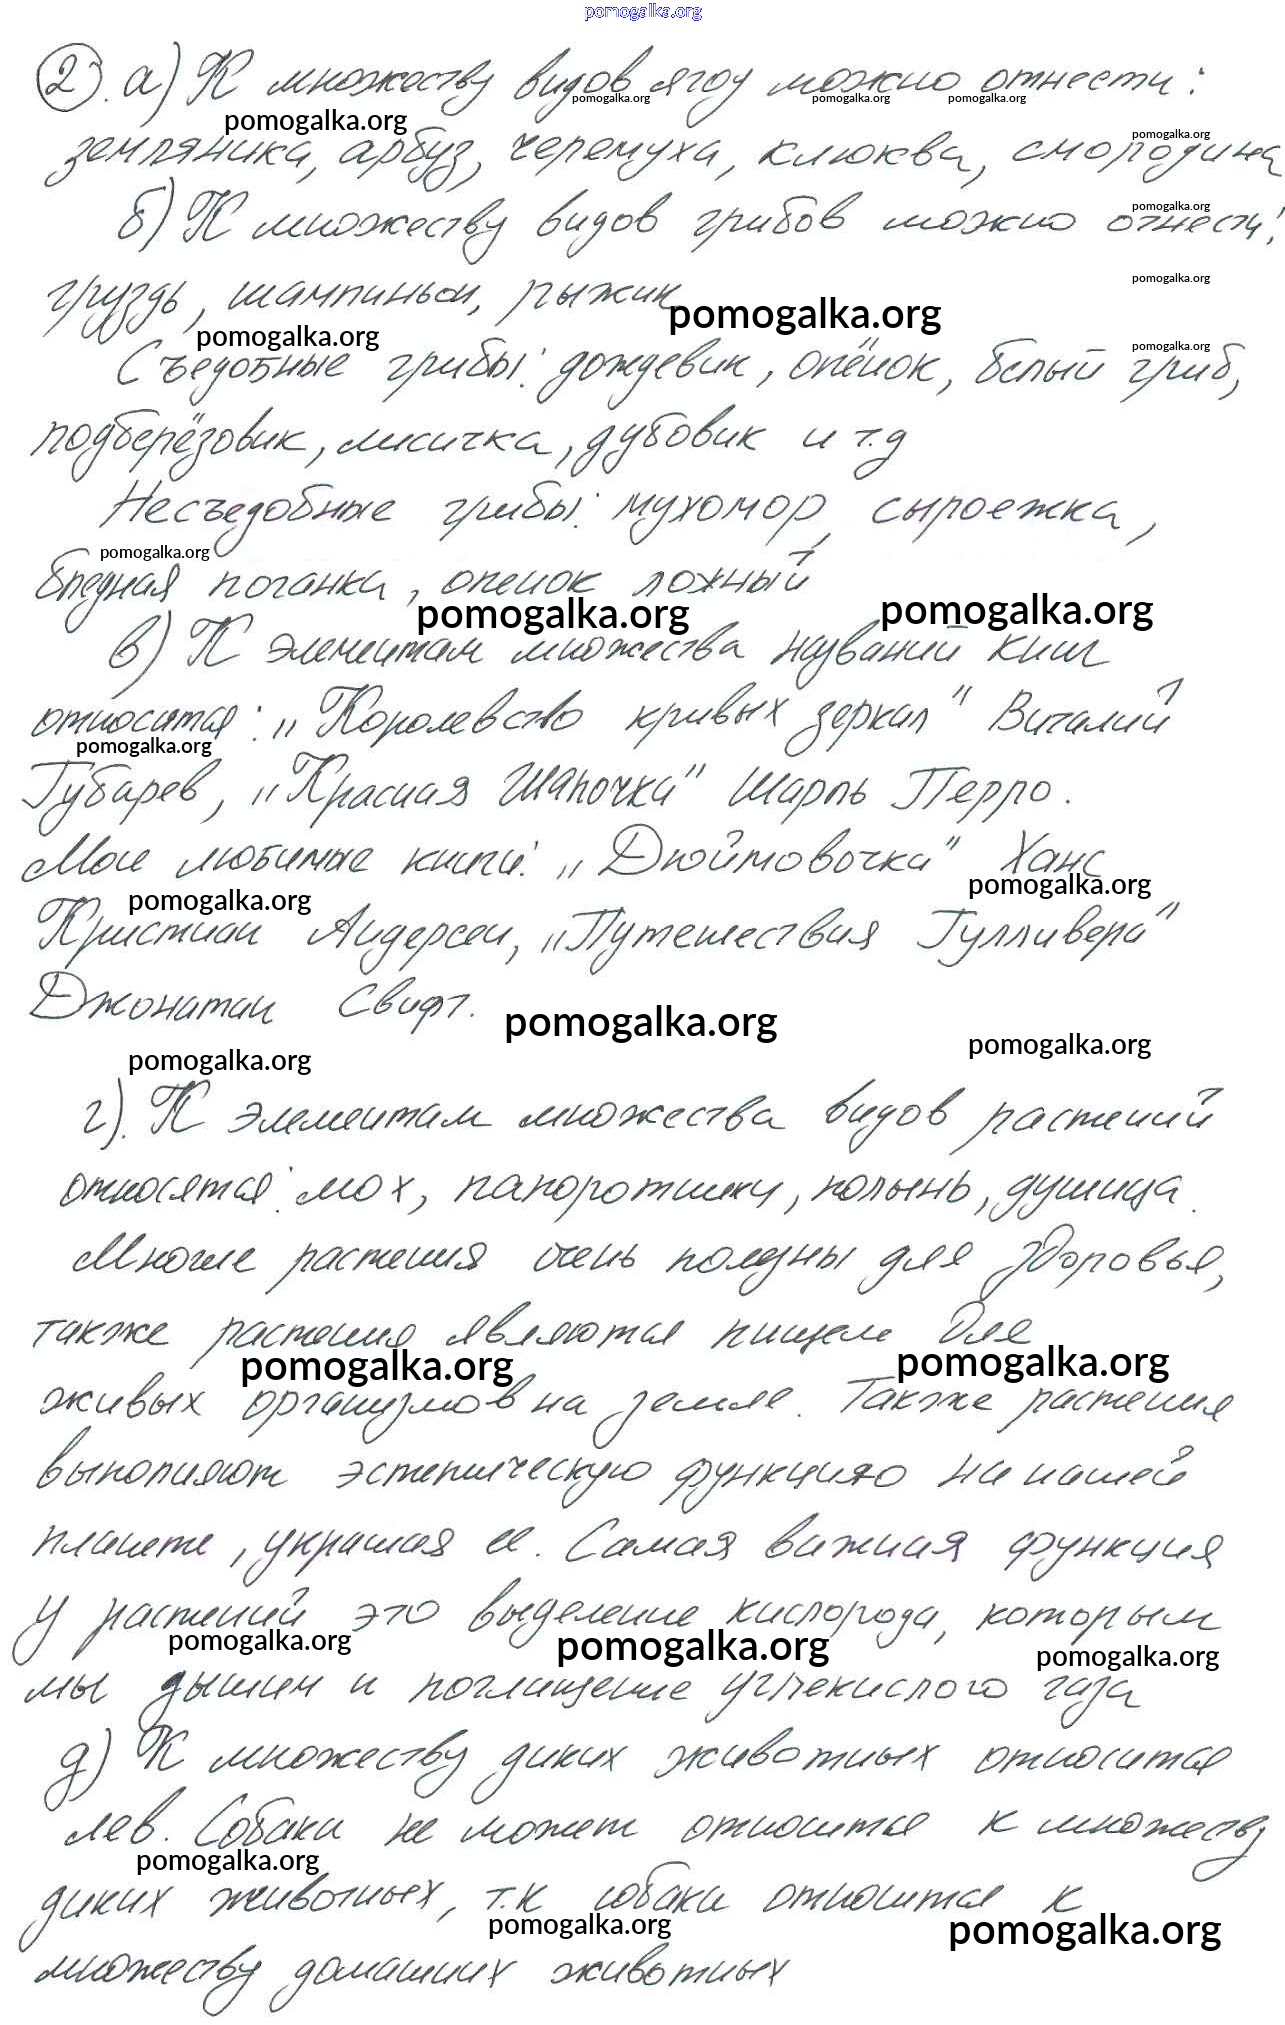 pomogalka.org
2). а) К множеству видов ягод можно отнести:
pomogalka.org pomogalka.org pomogalka.org
pomogalka.org pomogalka.org
земляника, арбуз, черемуха, клюква, смородина
pomogalka.org
б) К множеству видов грибов можно отнести:
pomogalka.org
груздь, шампиньон, рыжик
pomogalka.org pomogalka.org pomogalka.org
Съедобные грибы: дождевик, опёнок, белый гриб,
подберёзовик, лисичка, дубовик и т.д
Несъедобные грибы: мухомор, сыроежка,
pomogalka.org
бледная поганка, опенок ложный
pomogalka.org pomogalka.org
в) К элементам множества названий книг
относятся: „Королевство кривых зеркал" Виталий
pomogalka.org
Губарев, „Красная Шапочка" Шарль Перро.
Мои любимые книги: „Дюймовочка" Ханс
pomogalka.org pomogalka.org
Кристиан Андерсен, „Путешествия Гулливера"
Джонатан Свифт.
pomogalka.org pomogalka.org
pomogalka.org
г). К элементам множества видов растений
относятся: мох, папоротники, полынь, душица.
Многие растения очень полезны для здоровья,
также растения являются пищей для
pomogalka.org pomogalka.org
живых организмов на земле. Также растения
выполняют эстетическую функцию на нашей
планете, украшая ее. Самая важная функция
у растений это выделение кислорода, которым
pomogalka.org pomogalka.org pomogalka.org
мы дышим и поглищение углекислого газа
д) К множеству диких животных относится
лев. Собака не может относится к множеству
pomogalka.org
диких животных, т.к собака относится к
pomogalka.org pomogalka.org
множеству домашних животных